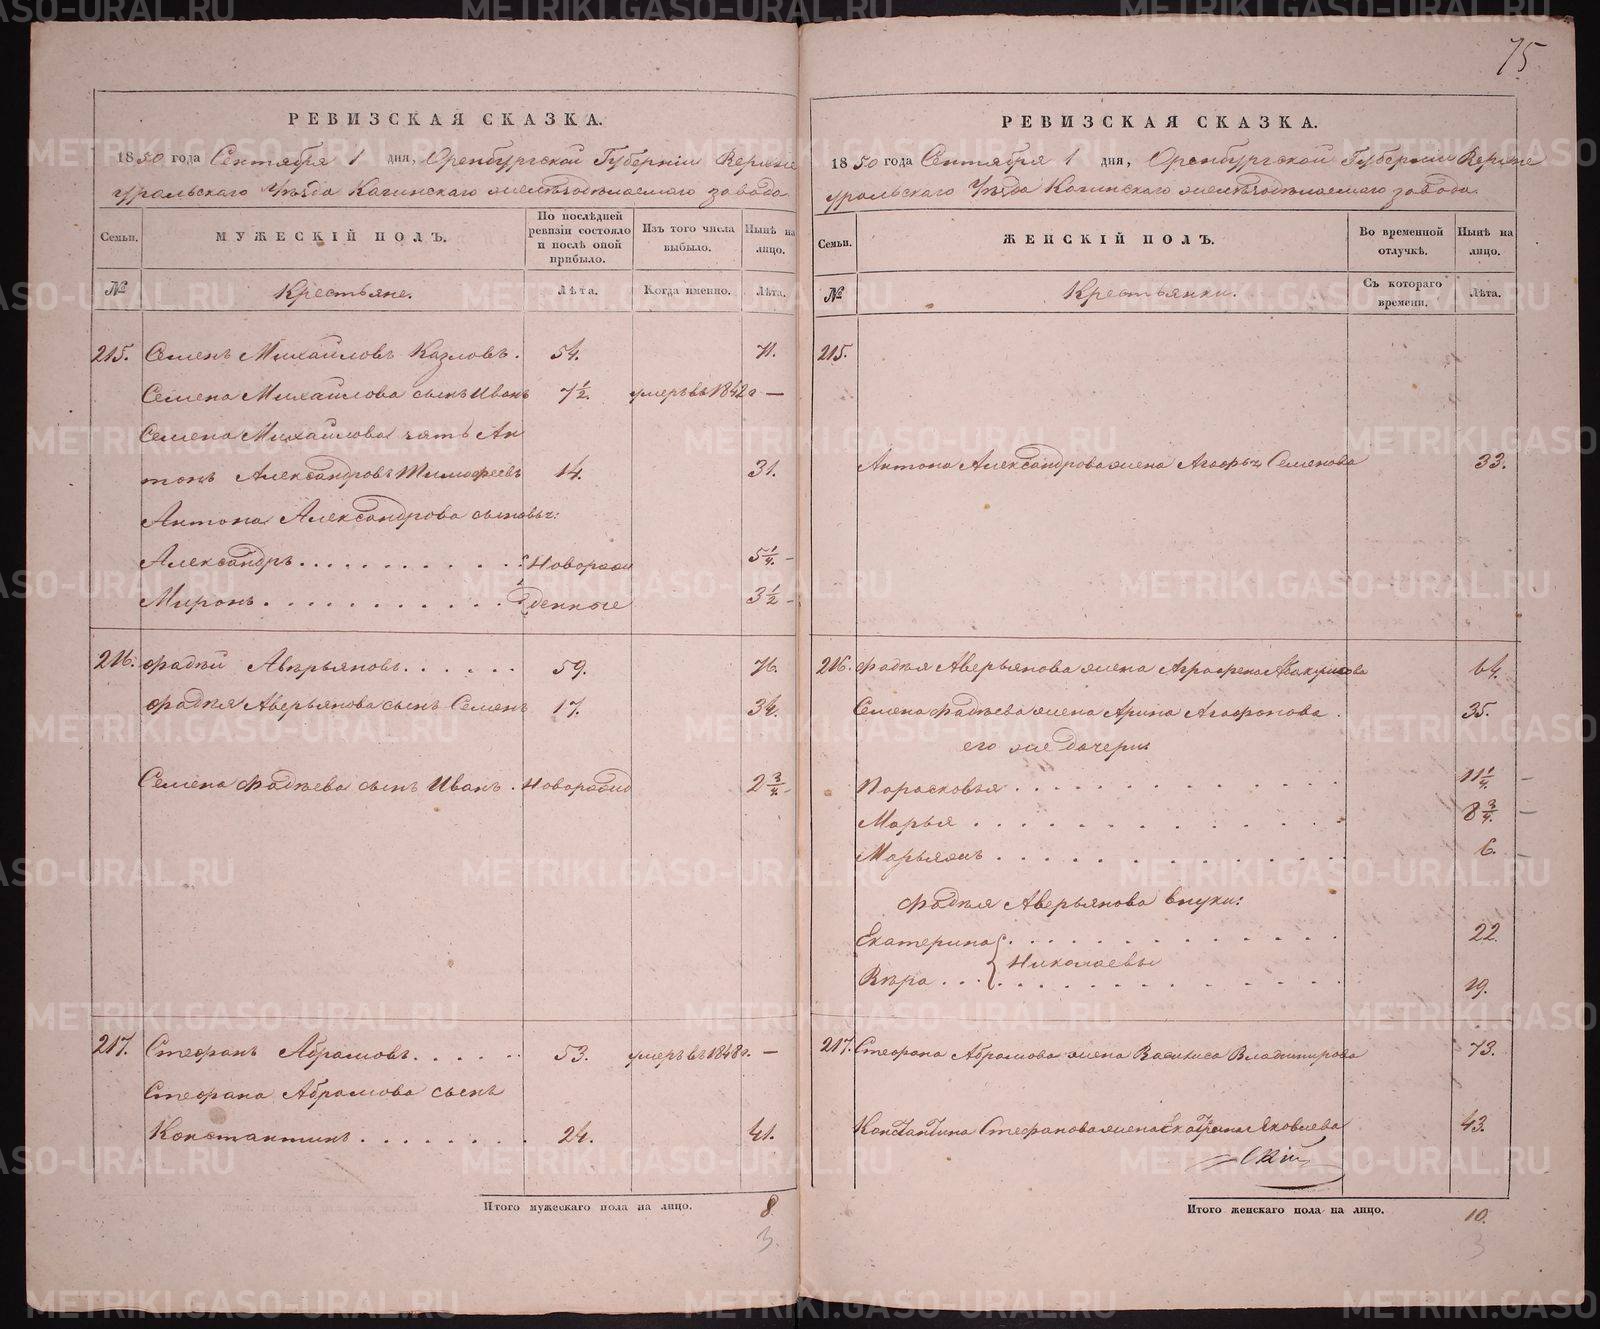 75
РЕВИЗСКАЯ СКАЗКА.
1850 года Сентября 1 дня, Оренбургской Губерніи Верхне
уральскаго Уѣзда Кагинскаго желѣзодѣлаемаго завода
Семьи.
МУЖЕСКІЙ ПОЛЪ.
По послѣдней ревизіи состояло и послѣ оной прибыло.
Изъ того числа выбыло.
Нынѣ на лицо.
№
Крестьяне.
Лѣта.
Когда именно.
Лѣта.
215. Семенъ Михайловъ Казловъ. 54. 71.
Семена Михайлова сынъ Иванъ 7½. умеръ въ 1842 —
Семена Михайлова зять Ан
тонъ Александровъ Тимофеевъ 14. 31.
Антона Александрова сыновья:
Александръ . . . . Новорож 5¼. -
Миронъ . . . . денные 3½ -
216. Фадѣй Аверьяновъ . . . . 59. 76.
Фадѣя Аверьянова сынъ Семенъ 17. 34.
Семена Фадѣева сынъ Иванъ . Новорожд 2¾. -
217. Стефанъ Абрамовъ . . . . 53. умеръ въ 1848 г. —
Стефана Абрамова сынъ
Константинъ . . . . 24. 41.
Итого мужескаго пола на лицо. 8
3.
РЕВИЗСКАЯ СКАЗКА.
1850 года Сентября 1 дня, Оренбургской Губерніи Верхне
уральскаго Уѣзда Кагинскаго желѣзодѣлаемаго завода.
Семьи.
ЖЕНСКІЙ ПОЛЪ.
Во временной отлучкѣ.
Нынѣ на лицо.
№
Крестьянки.
Съ котораго времени.
Лѣта.
215.
Антона Александрова жена Агафья Семенова 33.
216. Фадѣя Аверьянова жена Аграфена Абакумова 64.
Семена Фадѣева жена Арина Агафонова . 35.
его же дочери
Парасковья . . . . 11¼. —
Марья . . . . 8¾. —
Марьямъ . . . . 6. -
Фадѣя Аверьянова внуки:
Екатерина . . . . 22.
Николаевы
Вѣра . . . . 19.
217. Стефана Абрамова жена Василиса Владимирова 73.
Константина Стефанова жена Екатерина Яковлева 43.
Итого женскаго пола на лицо. 10.
3
METRIKI.GASO-URAL.RU